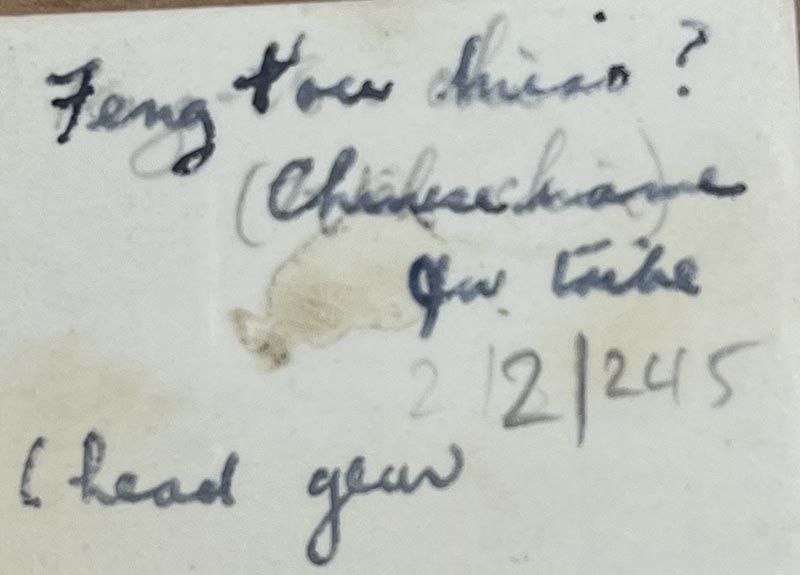 Feng tou miao ?
(Chinese name
for tribe
2/245
( head gear